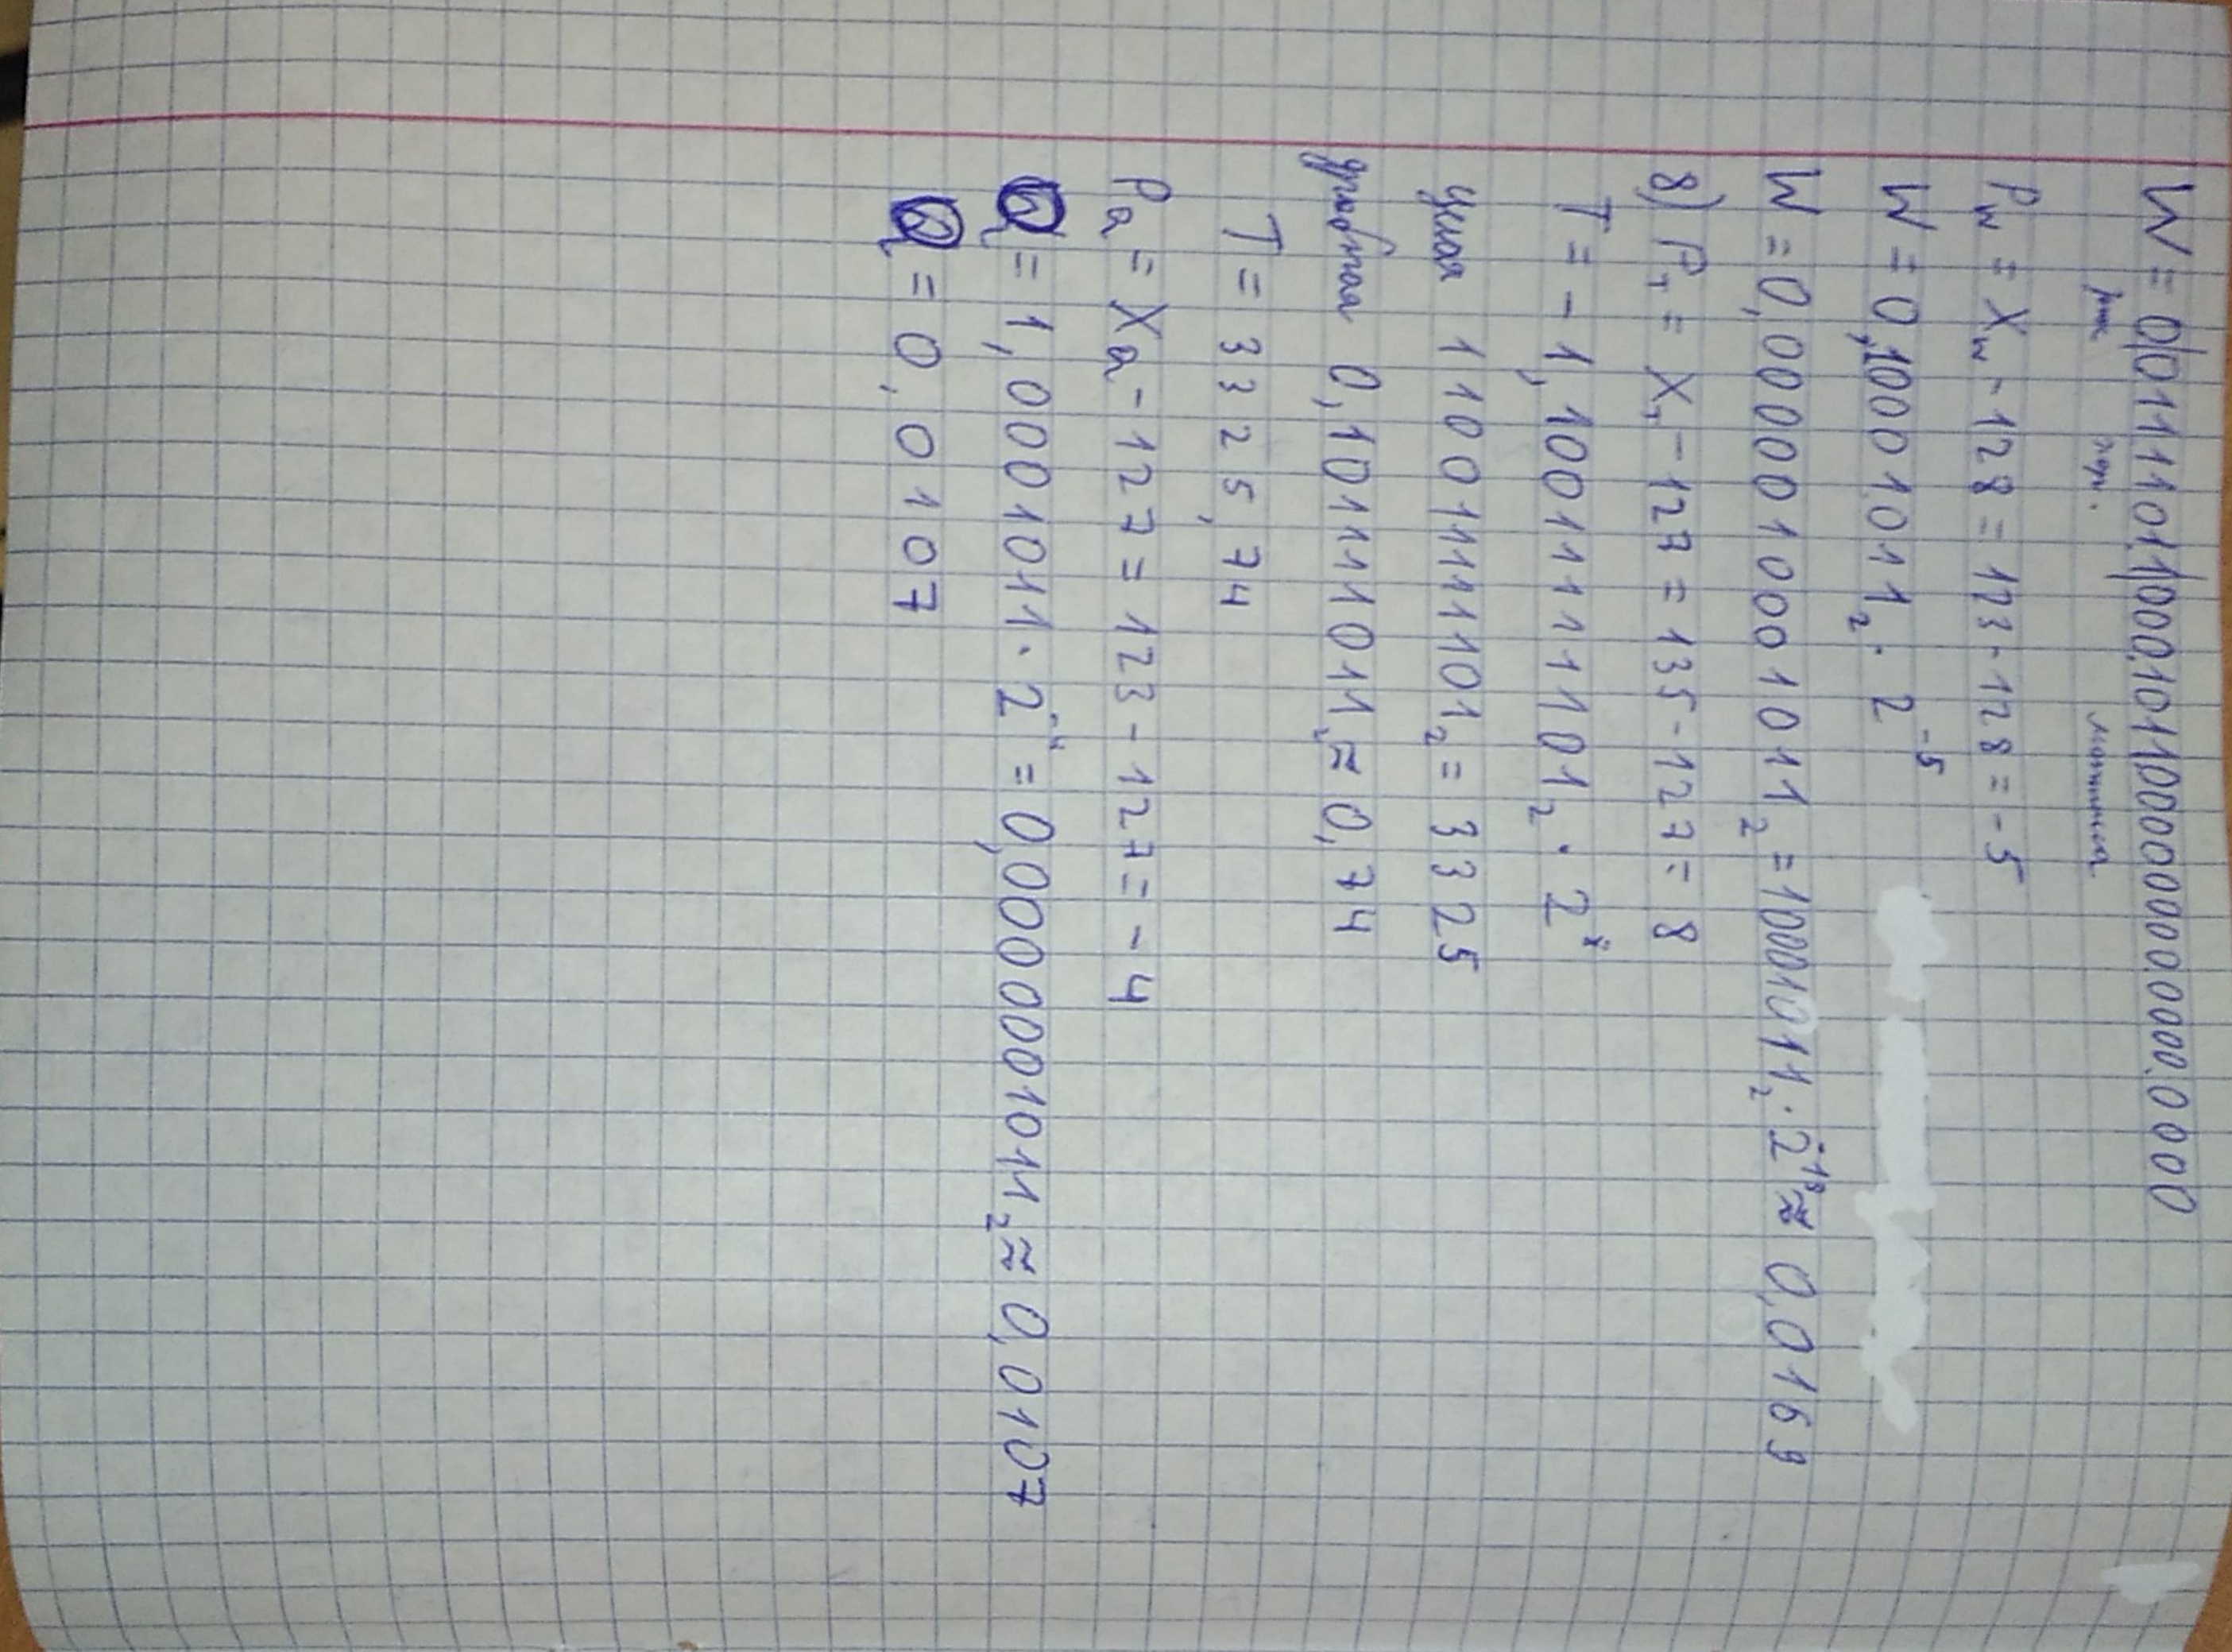 W = 0|01111011|00010110000000000000000
мантисса
P_W = X_W - 128 = 123 - 128 = -5
W = 0,10001011₂ · 2⁻⁵
W = 0,0000010001011₂ = 10001011₂ · 2⁻¹³ ≈ 0,0169
8) P_T = X_T - 127 = 135 - 127 = 8
T = - 1,10011111101₂ · 2⁸
целая 110011111101₂ = 3325
дробная 0,101111011₂ ≈ 0,74
T = 3325,74
P_Q = X_Q - 127 = 123 - 127 = - 4
Q = 1,0001011 · 2⁻⁴ = 0,00000001011₂ ≈ 0,0107
Q = 0,0107